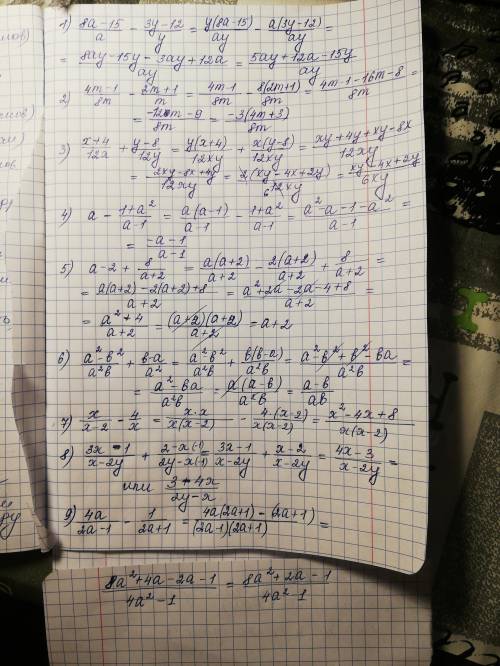 1) (8a-15)/a - (3y-12)/y = y(8a-15)/ay - a(3y-12)/ay =
= (8ay-15y-3ay+12a)/ay = (5ay+12a-15y)/ay
2) (4m-1)/8m - (2m+1)/m = (4m-1)/8m - 8(2m+1)/8m = (4m-1-16m-8)/8m =
= (-12m-9)/8m = -3(4m+3)/8m
3) (x+4)/12x + (y-8)/12y = y(x+4)/12xy + x(y-8)/12xy = (xy+4y+xy-8x)/12xy =
= (2xy-8x+4y)/12xy = 2(xy-4x+2y)/12xy = (xy-4x+2y)/6xy
4) a - (1+a²)/(a-1) = a(a-1)/(a-1) - (1+a²)/(a-1) = (a²-a-1-a²)/(a-1) =
= (-a-1)/(a-1)
5) a-2+8/(a+2) = a(a+2)/(a+2) - 2(a+2)/(a+2) + 8/(a+2) =
= (a(a+2)-2(a+2)+8)/(a+2) = (a²+2a-2a-4+8)/(a+2) =
= (a²+4)/(a+2) = (a+2)(a+2)/(a+2) = a+2
6) (a²-b²)/a²b + (b-a)/a² = (a²-b²)/a²b + b(b-a)/a²b = (a²-b²+b²-ba)/a²b =
= (a²-ba)/a²b = a(a-b)/a²b = (a-b)/ab
7) x/(x-2) - 4/x = x·x/x(x-2) - 4·(x-2)/x(x-2) = (x²-4x+8)/x(x-2)
8) (3x-1)/(x-2y) + (2-x(-1))/(2y-x(-1)) = (3x-1)/(x-2y) + (x-2)/(x-2y) = (4x-3)/(x-2y) =
или (3-4x)/(2y-x)
9) 4a/(2a-1) - 1/(2a+1) = (4a(2a+1)-(2a+1))/(2a-1)(2a+1) =
(8a²+4a-2a-1)/(4a²-1) = (8a²+2a-1)/(4a²-1)